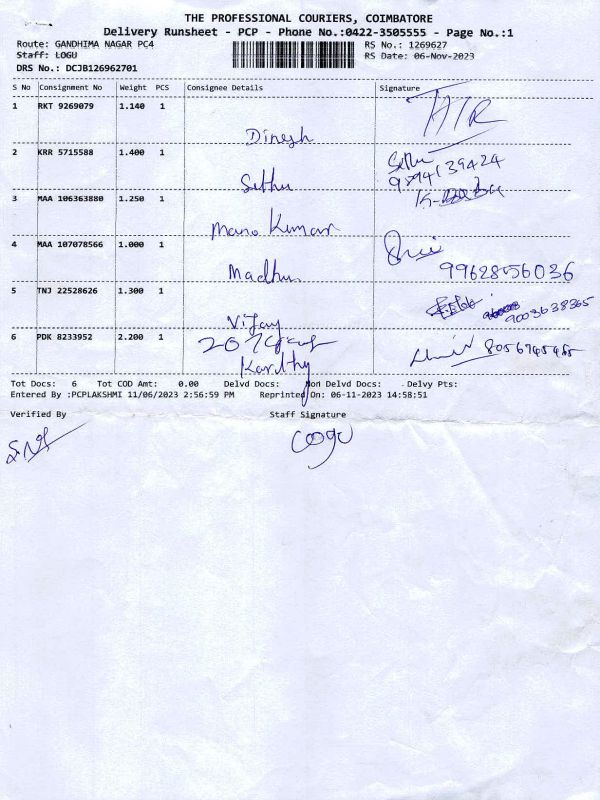 THE PROFESSIONAL COURIERS, COIMBATORE
Delivery Runsheet - PCP - Phone No.:0422-3505555 - Page No.:1
Route: GANDHIMA NAGAR PC4
RS No.: 1269627
Staff: LOGU
RS Date: 06-Nov-2023
DRS No.: DCJB126962701
S No Consignment No Weight PCS Consignee Details Signature
1 RKT 9269079 1.140 1
Dinesh
2 KRR 5715588 1.400 1
Sethu
9894139424
Sethu
3 MAA 106363880 1.250 1
Mano Kumar
4 MAA 107078566 1.000 1
Madhu
9962856036
5 TNJ 22528626 1.300 1
9003638365
Vijay
6 PDK 8233952 2.200 1
Karthy
Tot Docs: 6 Tot COD Amt: 0.00 Delvd Docs: Non Delvd Docs: Delvy Pts:
Entered By :PCPLAKSHMI 11/06/2023 2:56:59 PM Reprinted On: 06-11-2023 14:58:51
Verified By Staff Signature
Logu